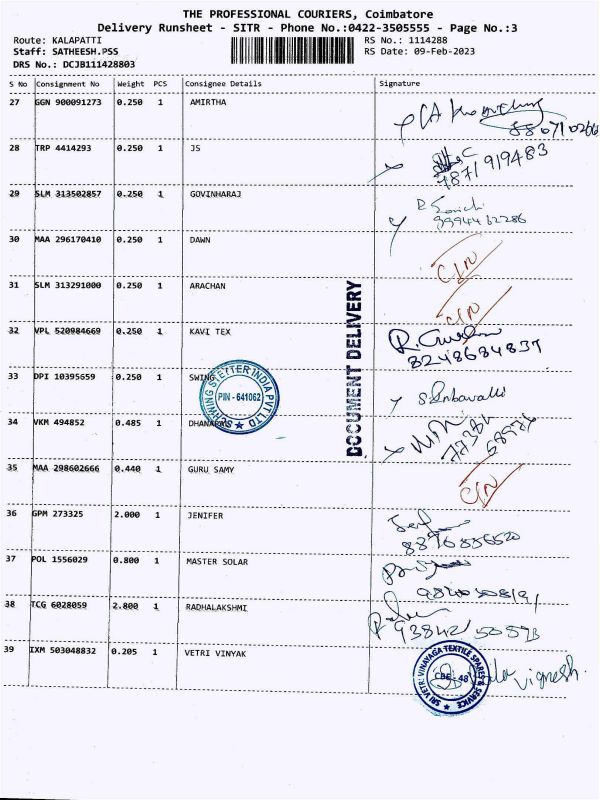 THE PROFESSIONAL COURIERS, Coimbatore
Delivery Runsheet - SITR - Phone No.:0422-3505555 - Page No.:3
Route: KALAPATTI RS No.: 1114288
Staff: SATHEESH.PSS RS Date: 09-Feb-2023
DRS No.: DCJB111428803
S No Consignment No Weight PCS Consignee Details Signature
27 GGN 900091273 0.250 1 AMIRTHA
28 TRP 4414293 0.250 1 JS
7871919483
29 SLM 313502857 0.250 1 GOVINHARAJ
9994462286
30 MAA 296170410 0.250 1 DAWN
C/N
31 SLM 313291000 0.250 1 ARACHAN
C/N
32 VPL 520984669 0.250 1 KAVI TEX
8248684837
DOCUMENT DELIVERY
33 DPI 10395659 0.250 1 SWING
SCHWING STETTER INDIA PVT LTD
PIN - 641062
34 VKM 494852 0.485 1
35 MAA 298602666 0.440 1 GURU SAMY
C/N
36 GPM 273325 2.000 1 JENIFER
37 POL 1556029 0.800 1 MASTER SOLAR
38 TCG 6028059 2.800 1 RADHALAKSHMI
39 IXM 503048832 0.205 1 VETRI VINYAK
SRI VETRI VINAYAGA TEXTILE SPARES & SERVICE
CBE - 48
Vignesh.